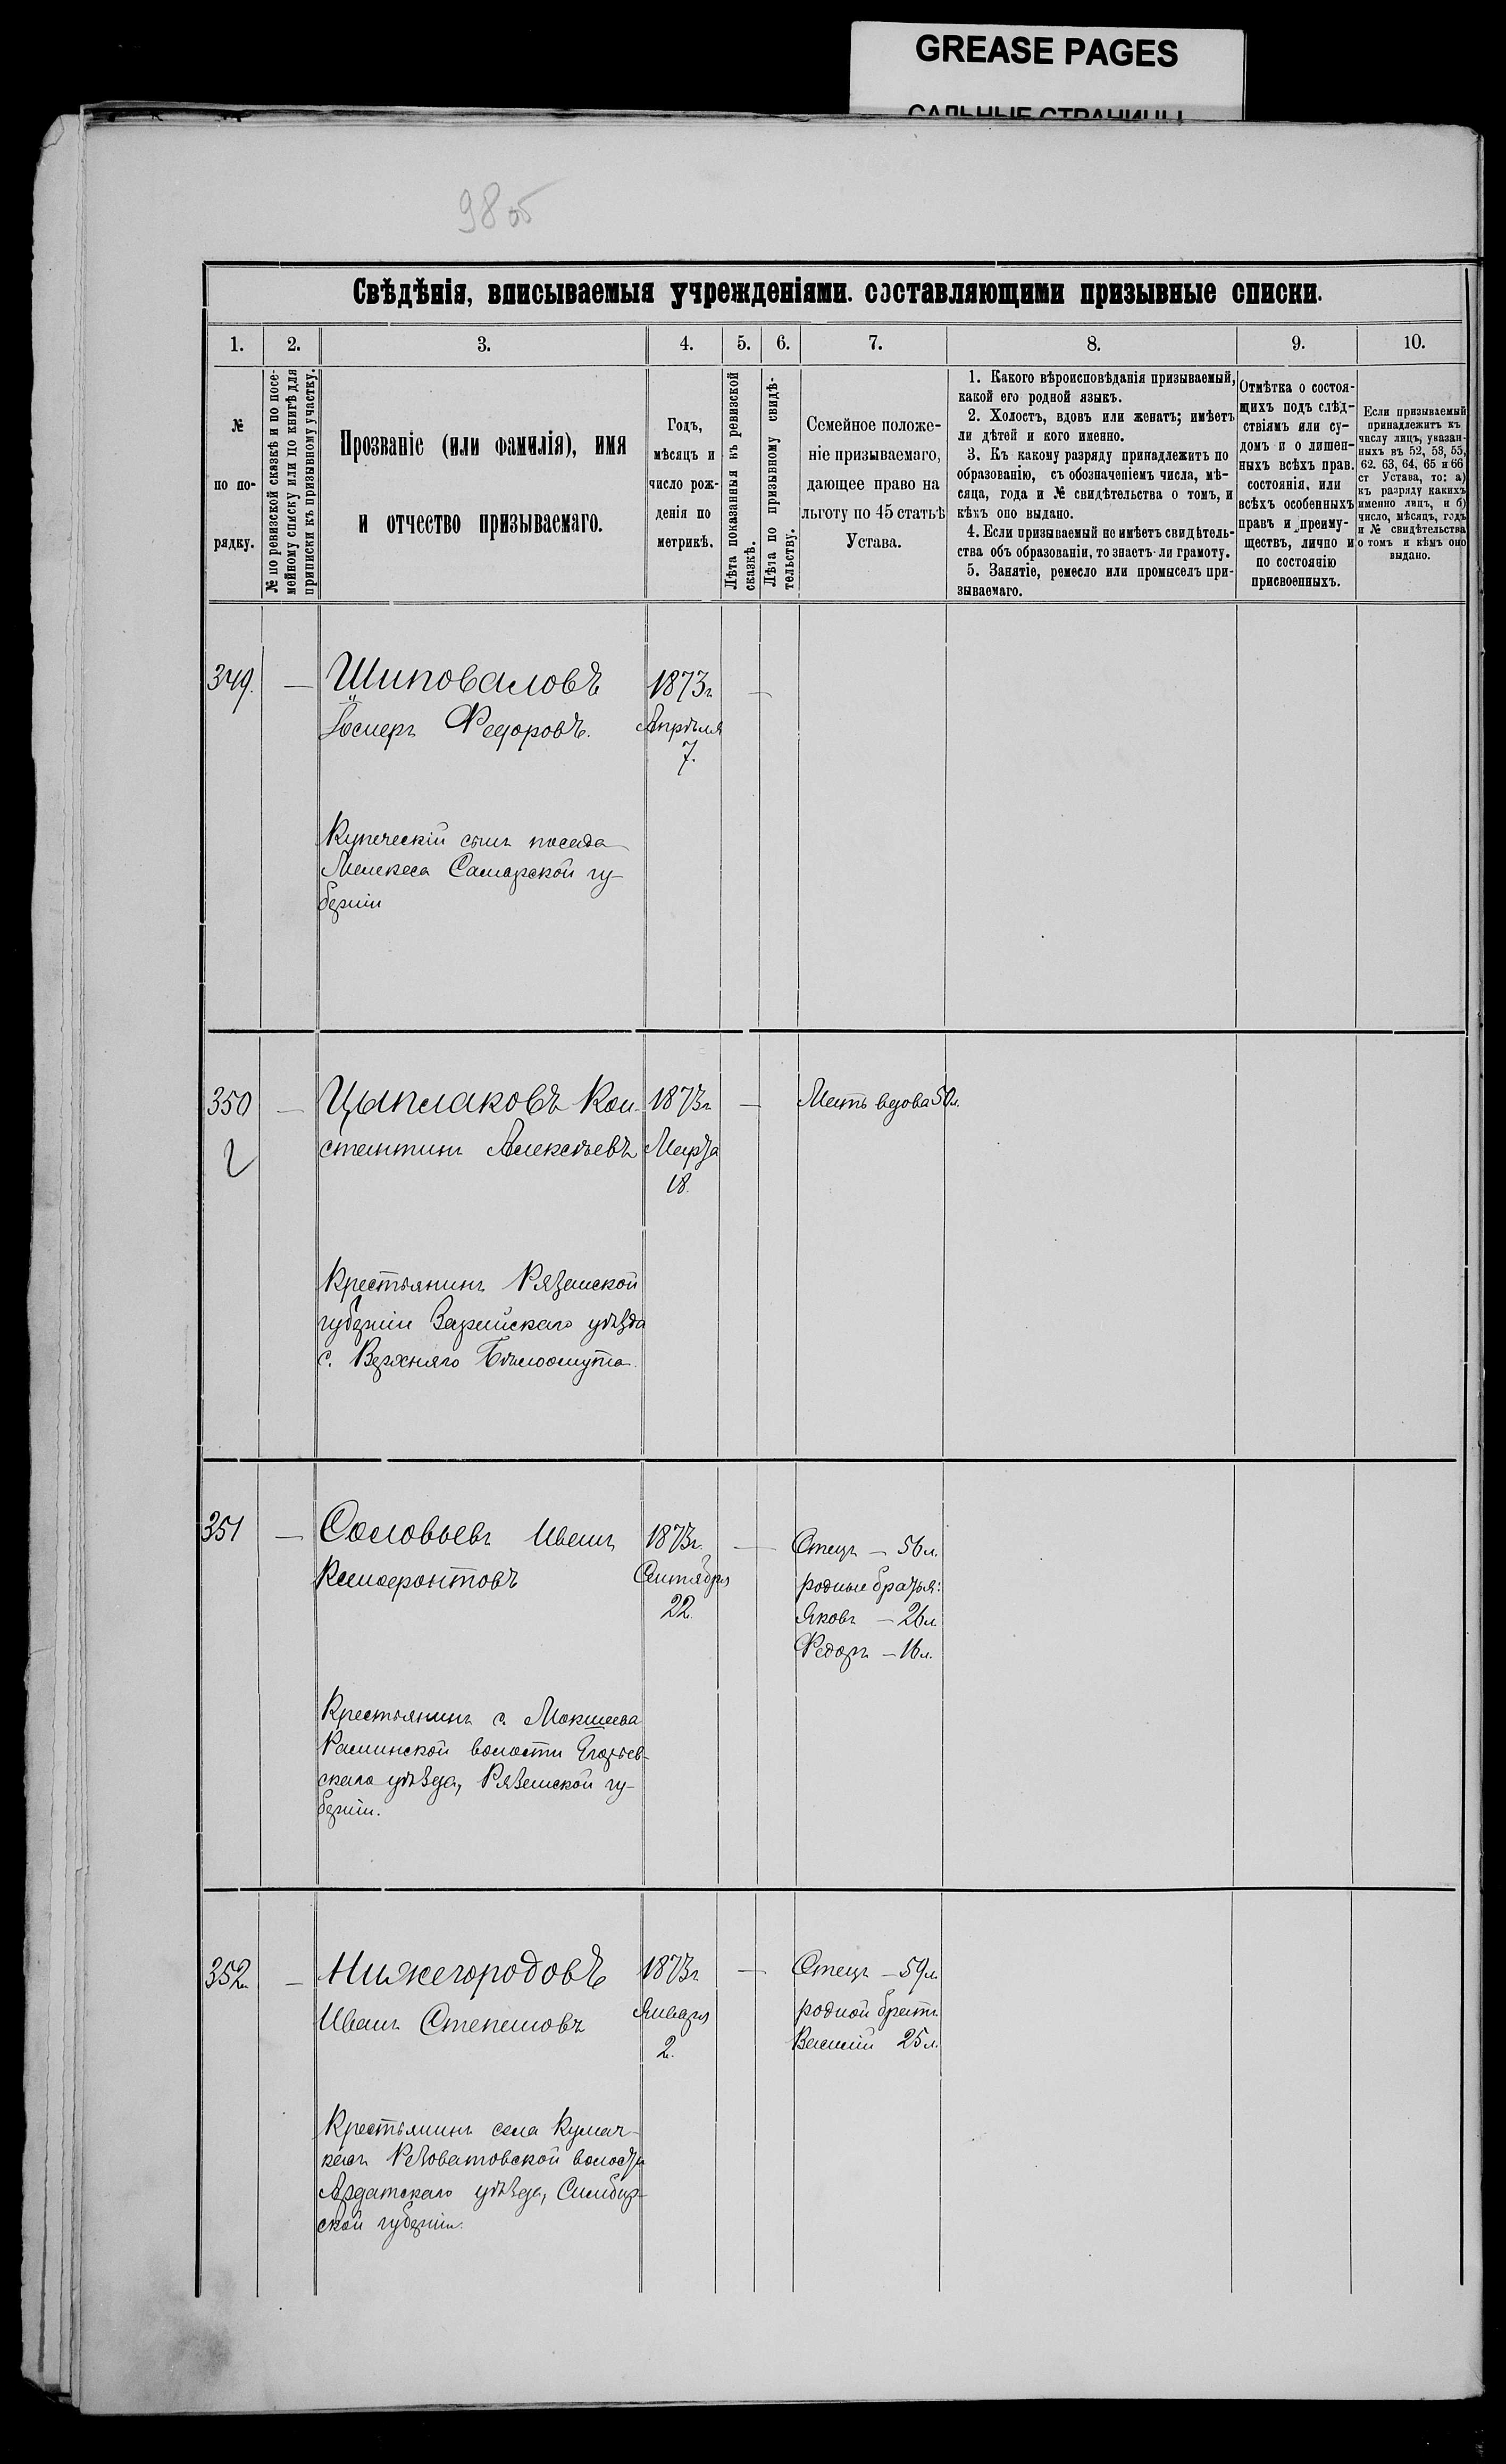 GREASE PAGES
САЛЬНЫЕ СТРАНИЦЫ
98об
Свѣдѣнія, вписываемыя учрежденіями. составляющими призывные списки.
1. 2. 3. 4. 5. 6. 7. 8. 9. 10.
№
по по-
рядку.
№ по ревизской сказкѣ и по посе-
мейному списку или по книгѣ для
приписки къ призывному участку.
Прозваніе (или фамилія), имя
и отчество призываемаго.
Годъ,
мѣсяцъ и
число рож-
денія по
метрикѣ.
Лѣта показанныя къ ревизской
сказкѣ.
Лѣта по призывному свидѣ-
тельству.
Семейное положе-
ніе призываемаго,
дающее право на
льготу по 45 статьѣ
Устава.
1. Какого вѣроисповѣданія призываемый,
какой его родной языкъ.
2. Холостъ, вдовъ или женатъ; имѣетъ
ли дѣтей и кого именно.
3. Къ какому разряду принадлежитъ по
образованію, съ обозначеніемъ числа, мѣ-
сяца, года и № свидѣтельства о томъ, и
кѣмъ оно выдано.
4. Если призываемый не имѣетъ свидѣтель-
ства объ образованіи, то знаетъ-ли грамоту.
5. Занятіе, ремесло или промыселъ при-
зываемаго.
Отмѣтка о состоя-
щихъ подъ слѣд-
ствіямъ или су-
домъ и о лишен-
ныхъ всѣхъ прав.
состоянія, или
всѣхъ особенныхъ
правъ и преиму-
ществъ, лично и
по состоянію
присвоенныхъ.
Если призываемый
принадлежитъ къ
числу лицъ, указан-
ныхъ въ 52, 53, 55,
62. 63, 64, 65 и 66
ст Устава, то: а)
къ разряду какихъ
именно лицъ, и б)
число, мѣсяцъ, годъ
и № свидѣтельства
о томъ и кѣмъ оно
выдано.
349. — Шиповаловъ 1873г —
Федоровъ. Апрѣля
7.
Купеческій сынъ посада
Мелекеса Самарской гу-
берніи
350 — Цыплаковъ Кон- 1873г — Мать вдова 50л.
стантинъ Алексѣевъ Марта
18.
Крестьянинъ Рязанской
губерніи Зарайскаго уѣзда
с. Верхняго Бѣлоомута.
351 — Соловьевъ Иванъ 1873г. — Отецъ — 56л.
Ксенофонтовъ Сентября родные братья:
22. Яковъ — 26л.
Федоръ — 16л.
Крестьянинъ с. Макшеева
волости Егорьев-
скаго уѣзда, Рязанской гу-
берніи.
352. — Нижегородовъ 1873г — Отецъ — 59л.
Иванъ Степановъ Января родной братъ
2. Василій 25л.
Крестьянинъ села
волости
Ардатскаго уѣзда, Симбир-
ской губерніи.